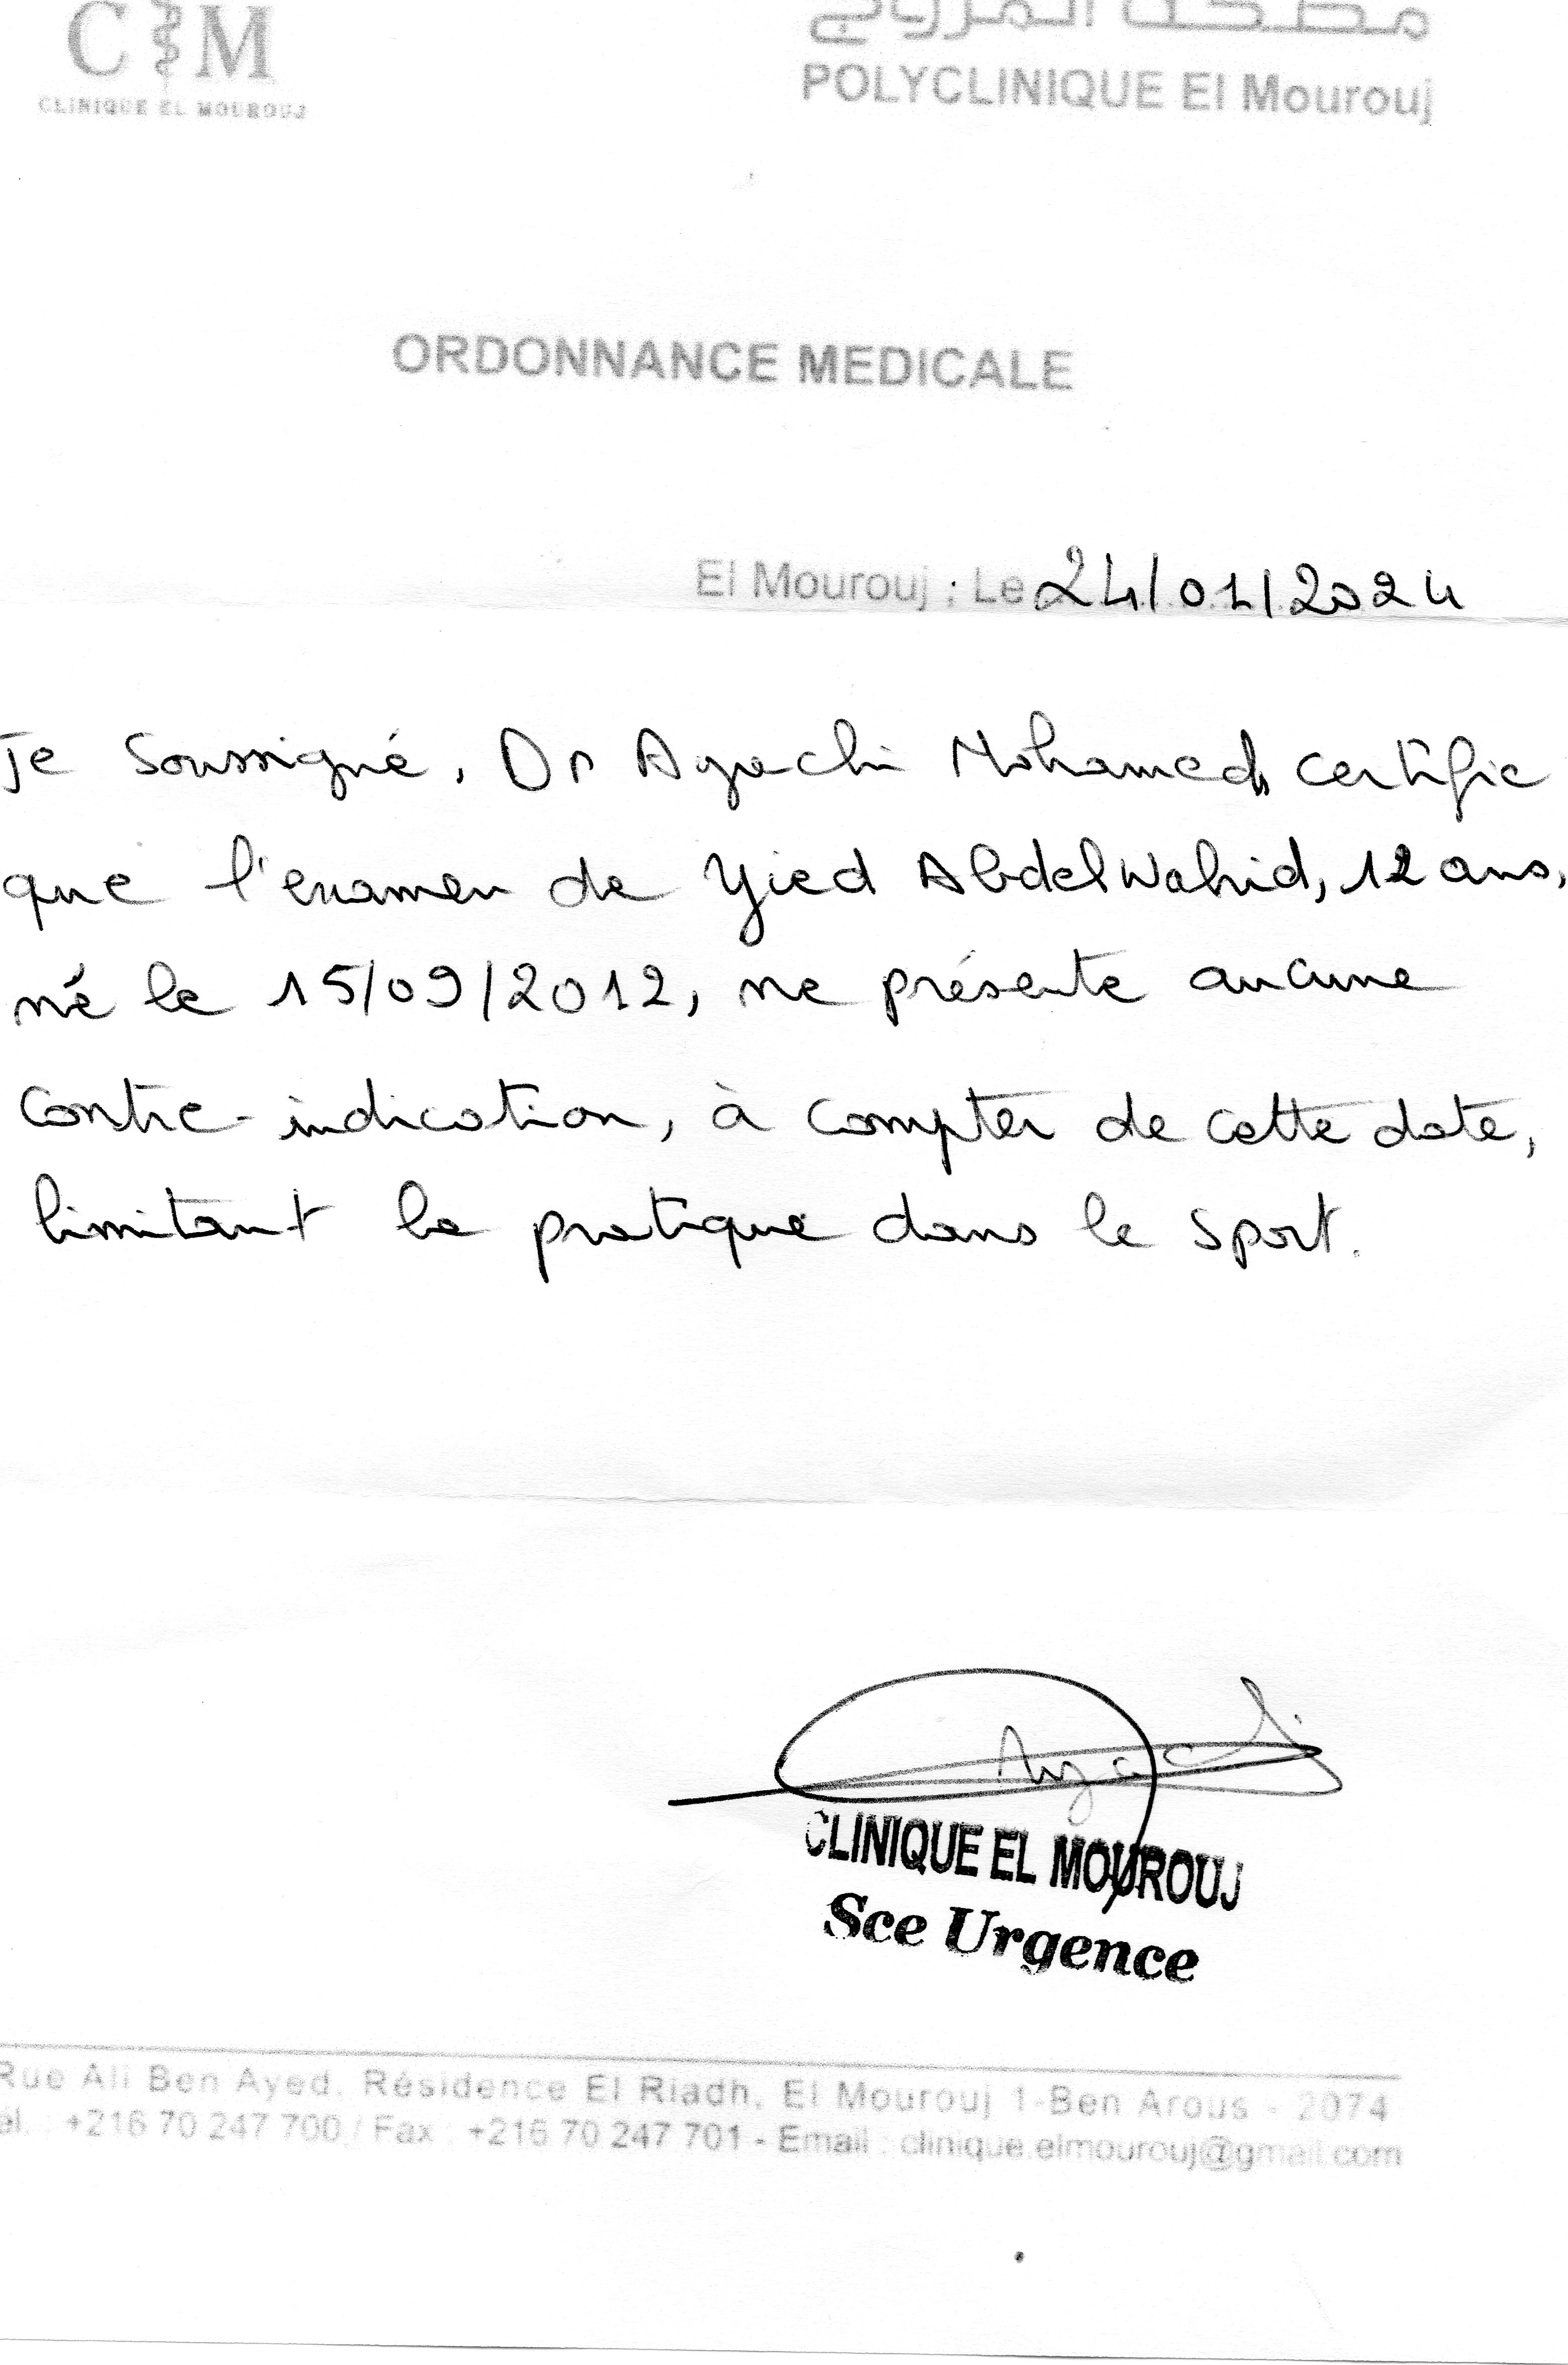 C M
CLINIQUE EL MOUROUJ
مصحة المروج
POLYCLINIQUE El Mourouj
ORDONNANCE MEDICALE
El Mourouj : Le 24/01/2024
Je soussigné, Dr Ayachi Mohamed, certifie
que l'examen de Yied AbdelWahid, 12 ans,
né le 15/09/2012, ne présente aucune
contre-indication, à compter de cette date,
limitant la pratique dans le sport.
Ayachi
CLINIQUE EL MOUROUJ
Sce Urgence
Rue Ali Ben Ayed, Résidence El Riadh, El Mourouj 1-Ben Arous - 2074
él. : +216 70 247 700 / Fax : +216 70 247 701 - Email : clinique.elmourouj@gmail.com